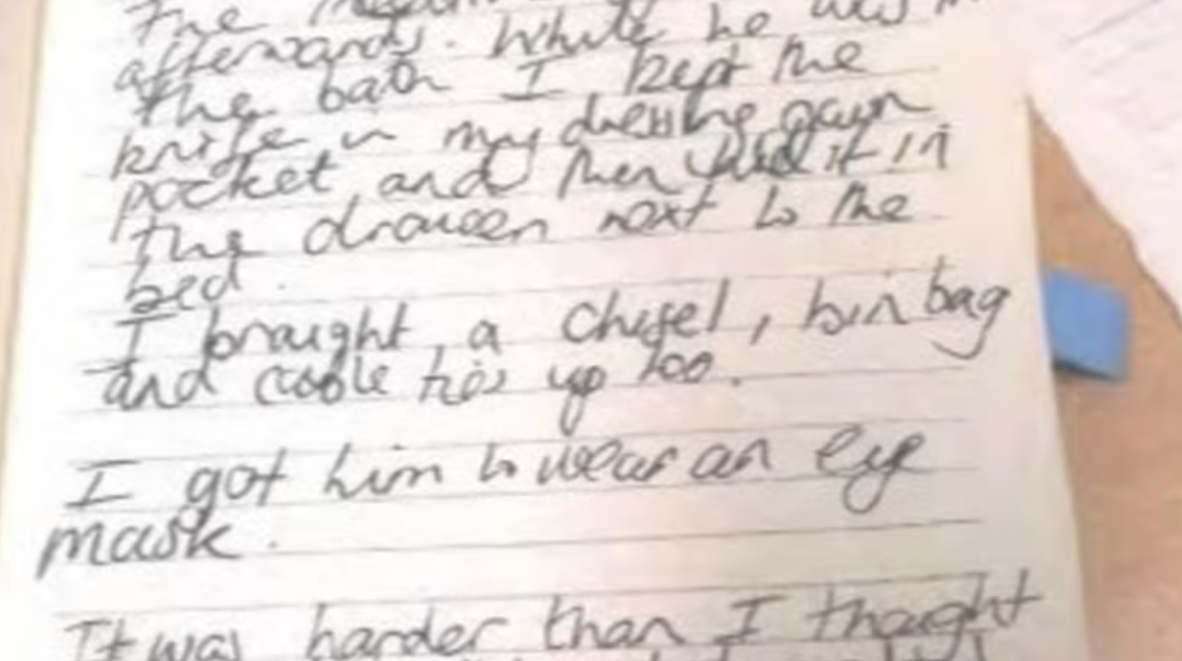 The
afterwards. While he was in
the bath I kept the
knife in my dressing gown
pocket and then hid it in
the drawer next to the
bed.
I braught a chisel, bin bag
and cable ties up too.
I got him to wear an eye
mask.
It was harder than I thaught